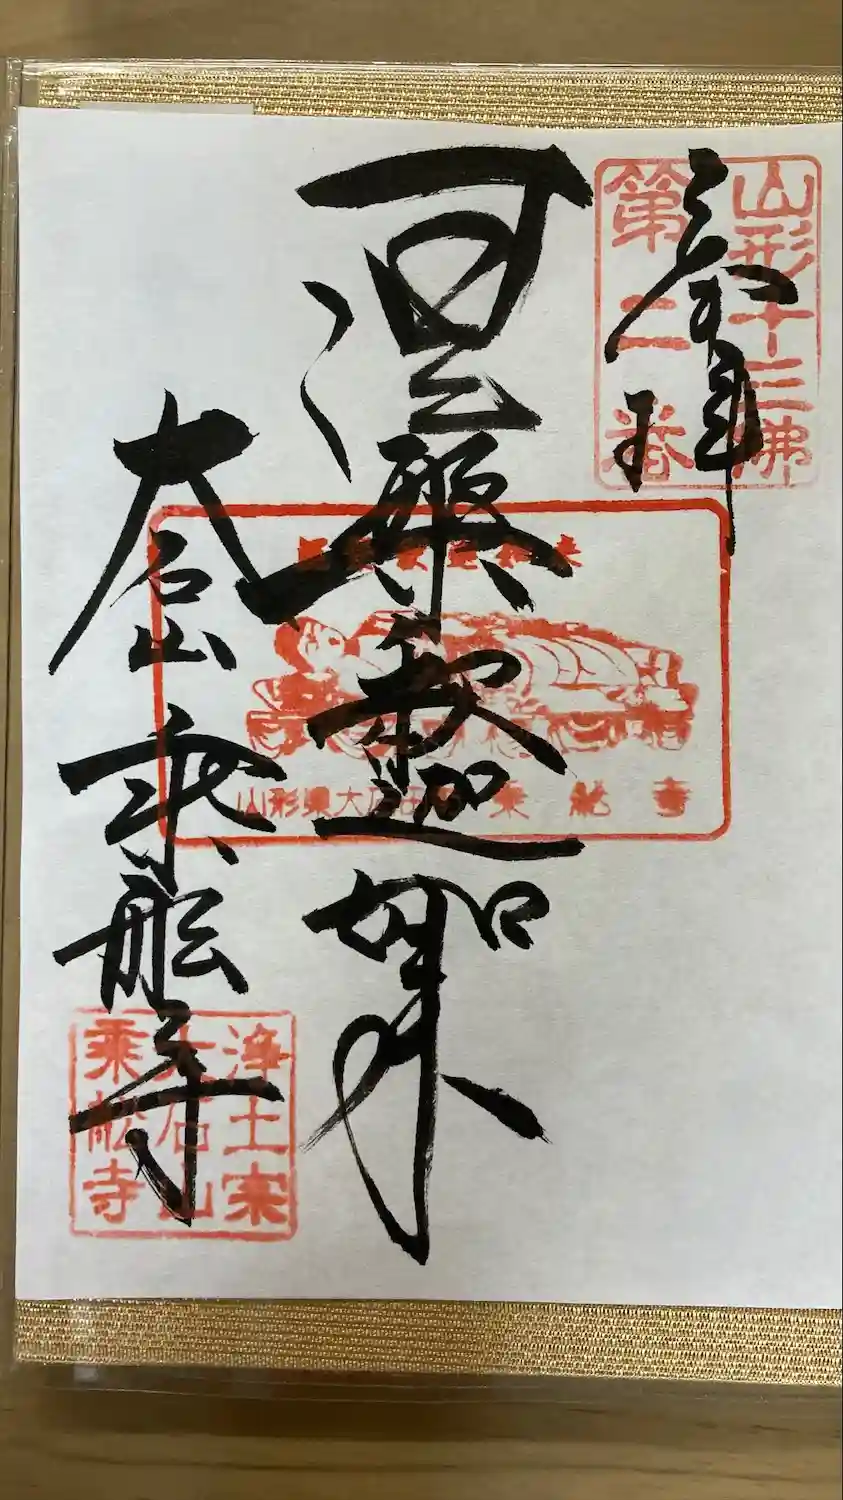 山形十三佛
第二番
奉拝
涅槃釋迦如来
山形県大石田町 乗舩寺
大石山 乗舩寺
浄土宗
大石山
乗舩寺